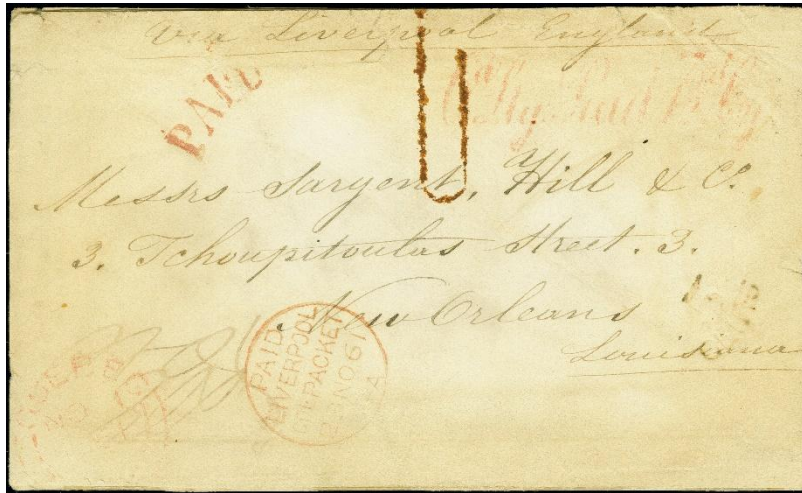 via Liverpool England
PAID
Paid
Messrs Sargent, Hill & Co.
3. Tchoupitoulas Street. 3.
New Orleans
Louisiana
PAID
LIVERPOOL
PACKET
NO 61
A